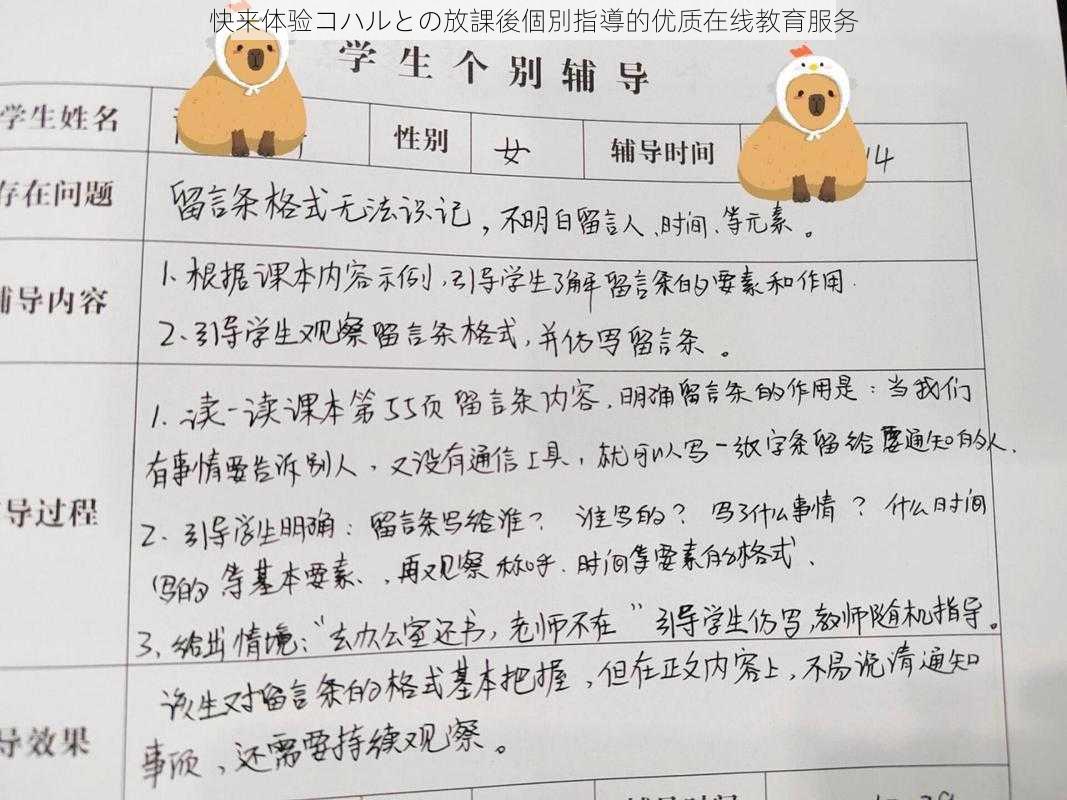 快来体验コハルとの放課後個別指導的优质在线教育服务
学生个别辅导
学生姓名 性别 女 辅导时间 14
存在问题 留言条格式无法识记，不明白留言人、时间、等元素。
辅导内容
1、根据课本内容示例，引导学生了解留言条的要素和作用.
2、引导学生观察留言条格式，并仿写留言条。
导过程
1、读一读课本第55页留言条内容，明确留言条的作用是：当我们
有事情要告诉别人，又没有通信工具，就可以写一张字条留给要通知的人.
2、引导学生明确：留言条写给谁？ 谁写的？ 写了什么事情？ 什么时间
写的等基本要素、，再观察称呼、时间等要素的格式、
3、给出情境：“去办公室还书，老师不在”引导学生仿写，教师随机指导。
导效果
该生对留言条的格式基本把握，但在正文内容上，不易说清通知
事项，还需要持续观察。